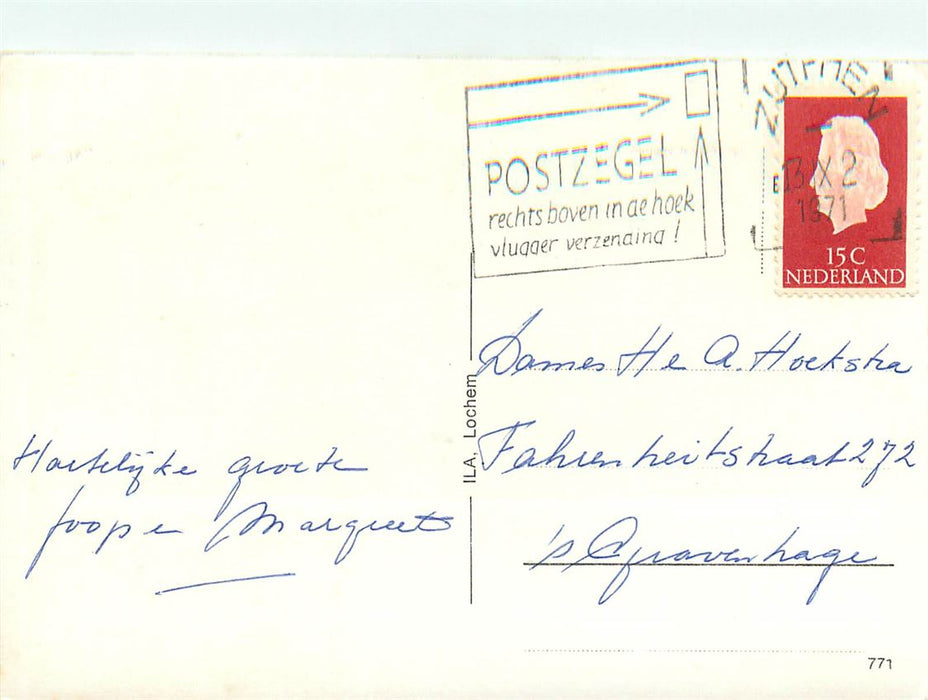 POSTZEGEL
rechts boven in de hoek
vlugger verzending !
ZUTPHEN
13 IX 2
1971
15 C
NEDERLAND
Dames H e A. Hoekstra
Fahrenheitstraat 272
's Gravenhage
Hartelijke groete
Joop en Margreet
ILA, Lochem
771